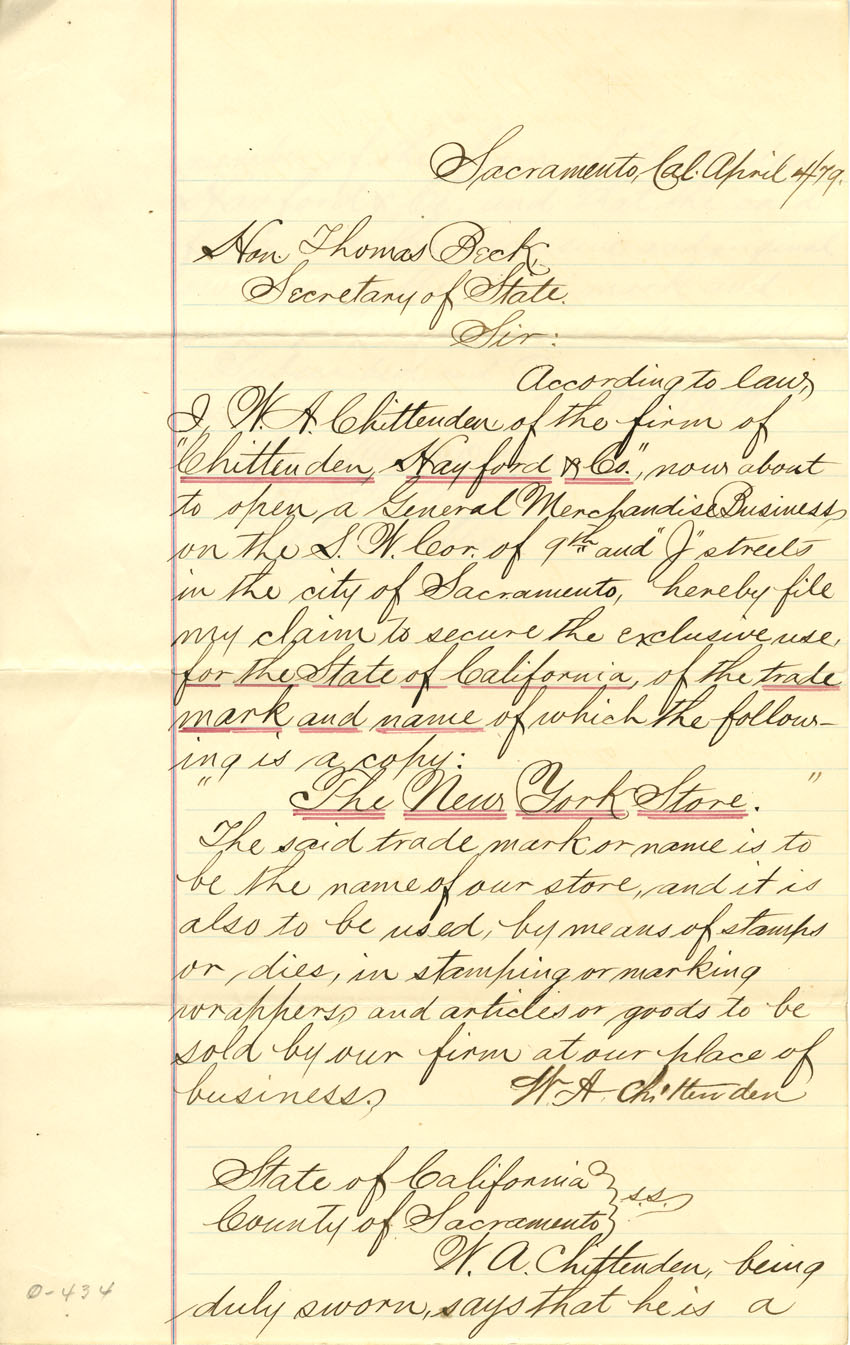 Sacramento, Cal. April 4/79.
Hon. Thomas Beck,
Secretary of State.
Sir:
According to law,
I W. A. Chittenden of the firm of
"Chittenden, Hayford & Co.", now about
to open a General Merchandise Business
on the S. W. Cor. of 9th and "J" streets
in the city of Sacramento, hereby file
my claim to secure the exclusive use,
for the State of California, of the trade
mark and name of which the follow-
ing is a copy:
" The New York Store. "
The said trade mark or name is to
be the name of our store, and it is
also to be used, by means of stamps
or dies, in stamping or marking
wrappers and articles or goods to be
sold by our firm at our place of
business. W. A. Chittenden
State of California } s.s.
County of Sacramento
W. A. Chittenden, being
duly sworn, says that he is a
0-434